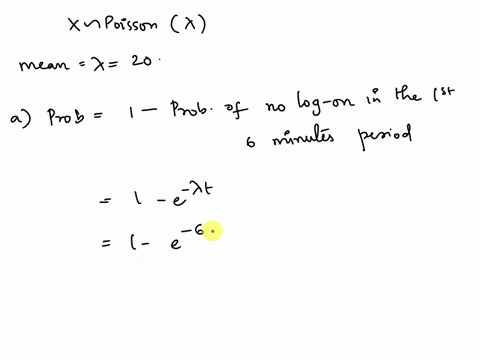 X ~ Poisson (λ)
mean = λ = 20.
a) Prob = 1 - Prob. of no log-on in the 1st
6 minutes period
= 1 - e^{-λt}
= 1 - e^{-6.}